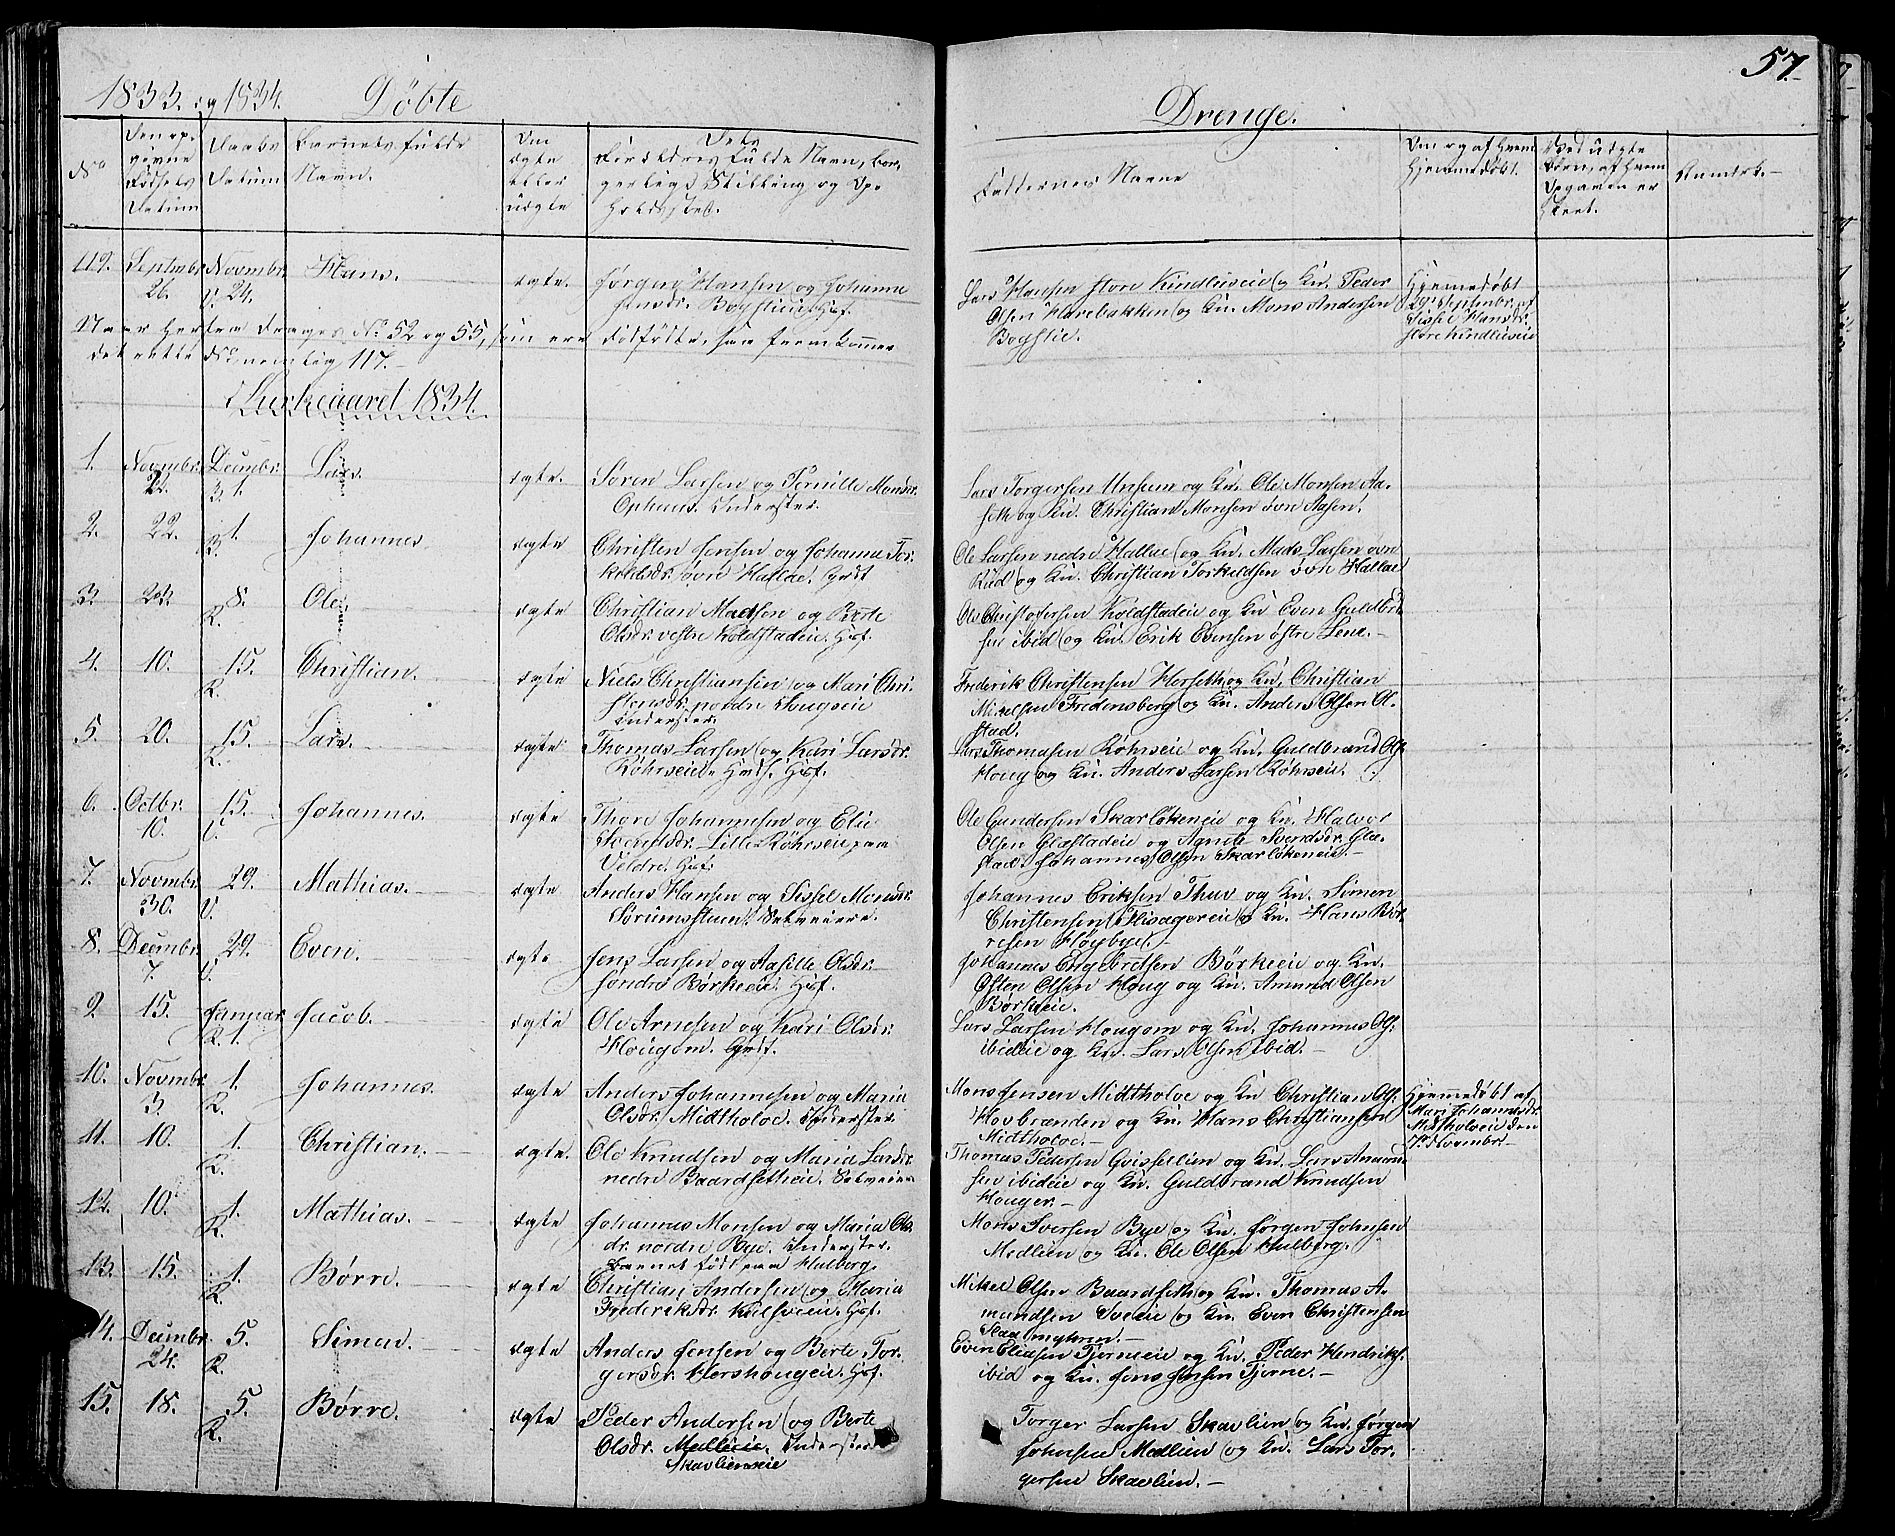 1833. og 1834. Døbte
Drenge.
57.
No
Den op-
givne
Fødsels
Datum
Daabs
Datum
Barnets fulde
Navn.
Om
ægte
eller
uægte
Dets
Forældres fulde Navn, bor-
gerlige Stilling og Op-
holdssted.
Faddernes Navne
Om og af hvem
hjemmedøbt.
Ved uægte
Børn, af hvem
Opgaven er
skeet.
Anmærk.
119. Septmbr. 26. Novmbr. V. 24. Hans. ægte. Jørgen Hansen og Johanne
Jensdr. Bøhstieie. Hsf.
Lars Hansen store Kindlieeie og Kn. Peder
Olsen Harebakken og Kn. Mons Andersen
Hjemmedøbt
29de Septembr. af
Sissel Hansdr.
store Kindlieeie
Naar herfra drages No 52 og 55, som ere dødfødte, saa fremkommer
det rette No nemlig 117.
Kirkeaaret 1834.
1. Novmbr. 22. Decmbr. 1. Lars. ægte. Søren Larsen og Pernille Monsdr.
Ophuus. Inderster.
Lars Torgersen Unsum og Kn. Ole Monsen Aa-
seth og Kn. Christian Monsen øvre Aasen.
2. 22. R. 1. Johannes. ægte Christen Jensen og Johanne Tor-
keldsdr. øvre Hallae. Grdf
Ole Larsen nedre Hallae og Kn. Mads Larsen øvre
Rud og Kn. Christian Torkeldsen øvre Hallae
3. 23. 8. R. Ole. ægte Christian Madsen og Berte
Olsdr. vestre Koldstadeie. Hsf.
Ole Christophersen Koldstadeie og Kn Even Guldbr.
sen ibid og Kn. Erik Evensen østre Lene.
4. 10. 15. R. Christian. ægte Niels Christiansen og Mari Chri-
stensdr. nordre Hougseie
Inderster.
Frederik Christensen Horseth og Kn. Christian
Mikelsen Fredensberg og Kn. Anders Olsen Ol-
stad.
5. 20. 15. R. Lars. ægte Thomas Larsen og Kari Larsdr.
Røhrseie. Hsf.
Lars Thomasen Røhrseie og Kn. Guldbrand Ols.
Houg og Kn. Anders Larsen Røhrseie.
6. Octbr. 10. 15. V. Johannes. ægte Thore Johannesen og Elie
Lille Røhrseie paa
Veldre. Hsf.
Ole Gundersen Skarløkeneie og Kn. Halvor
Olsen Glæstadeie og Agnete Svendsdr. Glæ-
stad. Johannes Olsen Skarløkeneie.
7. Novmbr. 30. 29. V. Mathias. ægte Anders Hansen og Sissel Monsdr.
Sørumsstuen. Selveiere.
Johannes Eriksen Thuv og Kn. Simen
Christensen Flisagereie og Kn. Hans Bør-
resen Høybye.
8. Decmbr. 7. 29. V. Even. ægte Jens Larsen og Aasille Olsdr.
søndre Børkeeie. Hsf.
Johannes Engebretsen Børkeeie og Kn.
Østen Olsen Houg og Kn. Amund Olsen
Børkeeie.
9. 15. Januar R. 1. Jacob. ægte Ole Arnesen og Kari Olsdr.
Hougom. Grdf.
Lars Larsen Hougom og Kn. Johannes Ols.
ibideie og Kn. Lars Olsen ibid.
10. Novmbr. 3. 1. R. Johannes. ægte Anders Johannesen og Maria
Olsdr. Midtholoe. Inderster.
Mons Jensen Midtholoe og Kn Christian Ols.
Hovbrænden og Kn. Hans Christiansen
Midtholoe.
Hjemmedøbt af
Mari Johannesdr.
Midtholoeie den
7de Novembr.
11. 10. 1. R. Christian. ægte. Ole Knudsen og Maria Larsdr.
nedre Baardsetheie. Selveier
Thomas Pedersen Gvissellien og Kn. Lars Amund-
sen ibideie og Kn. Guldbrand Knudsen
Houger.
12. 10. 1. R. Mathias. ægte Johannes Monsen og Maria Ols-
dr. nordre Bye. Inderster.
Barnet født paa Hulberg.
Mons Iversen Bye og Kn. Jørgen Johnsen
Medlien og Kn. Ole Olsen Hulberg.
13. 15. 1. R. Børre. ægte Christian Andersen og Maria
Frederiksdr. Kiilsveeie. Hsf.
Mikel Olsen Baardseth og Kn. Thomas A-
mundsen Sveeie og Kn. Even Christensen
14. Decmbr. 24. 5. R. Simen. ægte Anders Jensen og Berte Tor-
gersdr. Hershougeie. Hsf.
Even Eliasen Tjerneeie og Kn. Peder Hendriks.
ibid og Kn. Jens Jensen Tjerne.
15. 18. 5. R. Børre. ægte Peder Andersen og Berte
Olsdr. Mellieie. Inderster
Skavlieneie
Torger Larsen Skavlien og Kn. Jørgen
Johnsen Medlien og Kn. Lars Tor-
gersen Skavlien.